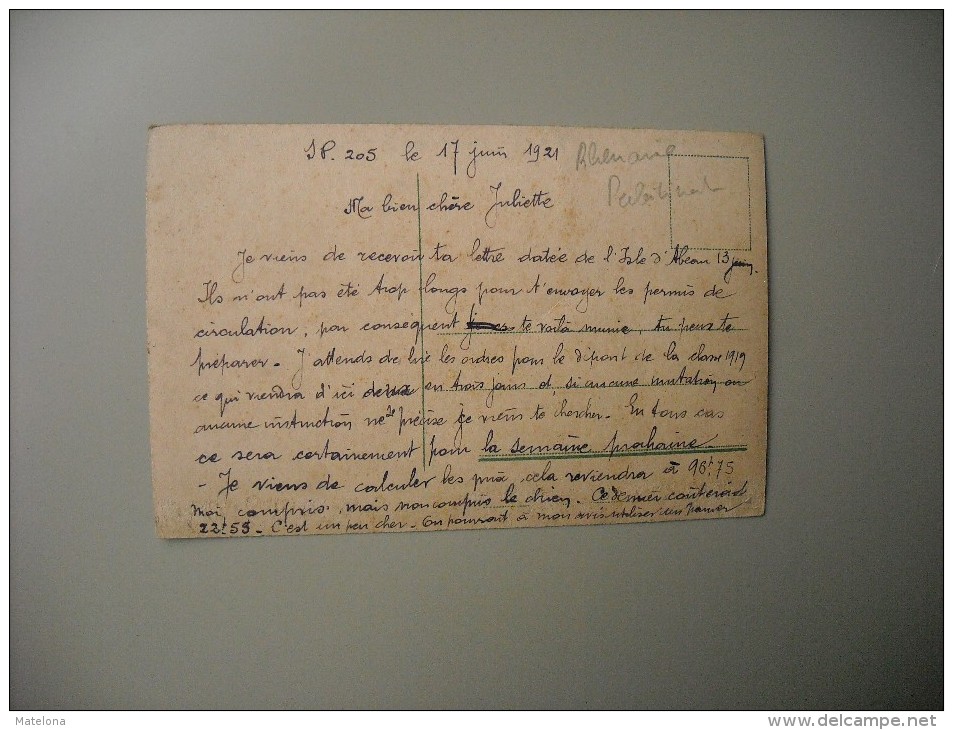 SP. 205 le 17 juin 1921
Rhénanie
Palatinat
Ma bien chère Juliette
Je viens de recevoir ta lettre datée de l'Isle d'Abeau 13 juin.
Ils n'ont pas été trop longs pour t'envoyer les permis de
circulation, par conséquent te voilà munie, tu peux te
préparer - J'attends de lire les ordres pour le départ de la classe 1919
ce qui viendra d'ici deux en trois jours et, si aucune mutation ou
aucune instruction ne se précise je viens te chercher. En tous cas
ce sera certainement pour la semaine prochaine.
- Je viens de calculer les prix, cela reviendra à 96f75
moi compris, mais non compris le chien. Ce dernier coûterait
22f55 - C'est un peu cher - On pourrait à mon avis utiliser un panier
Matelona
delcampe.net